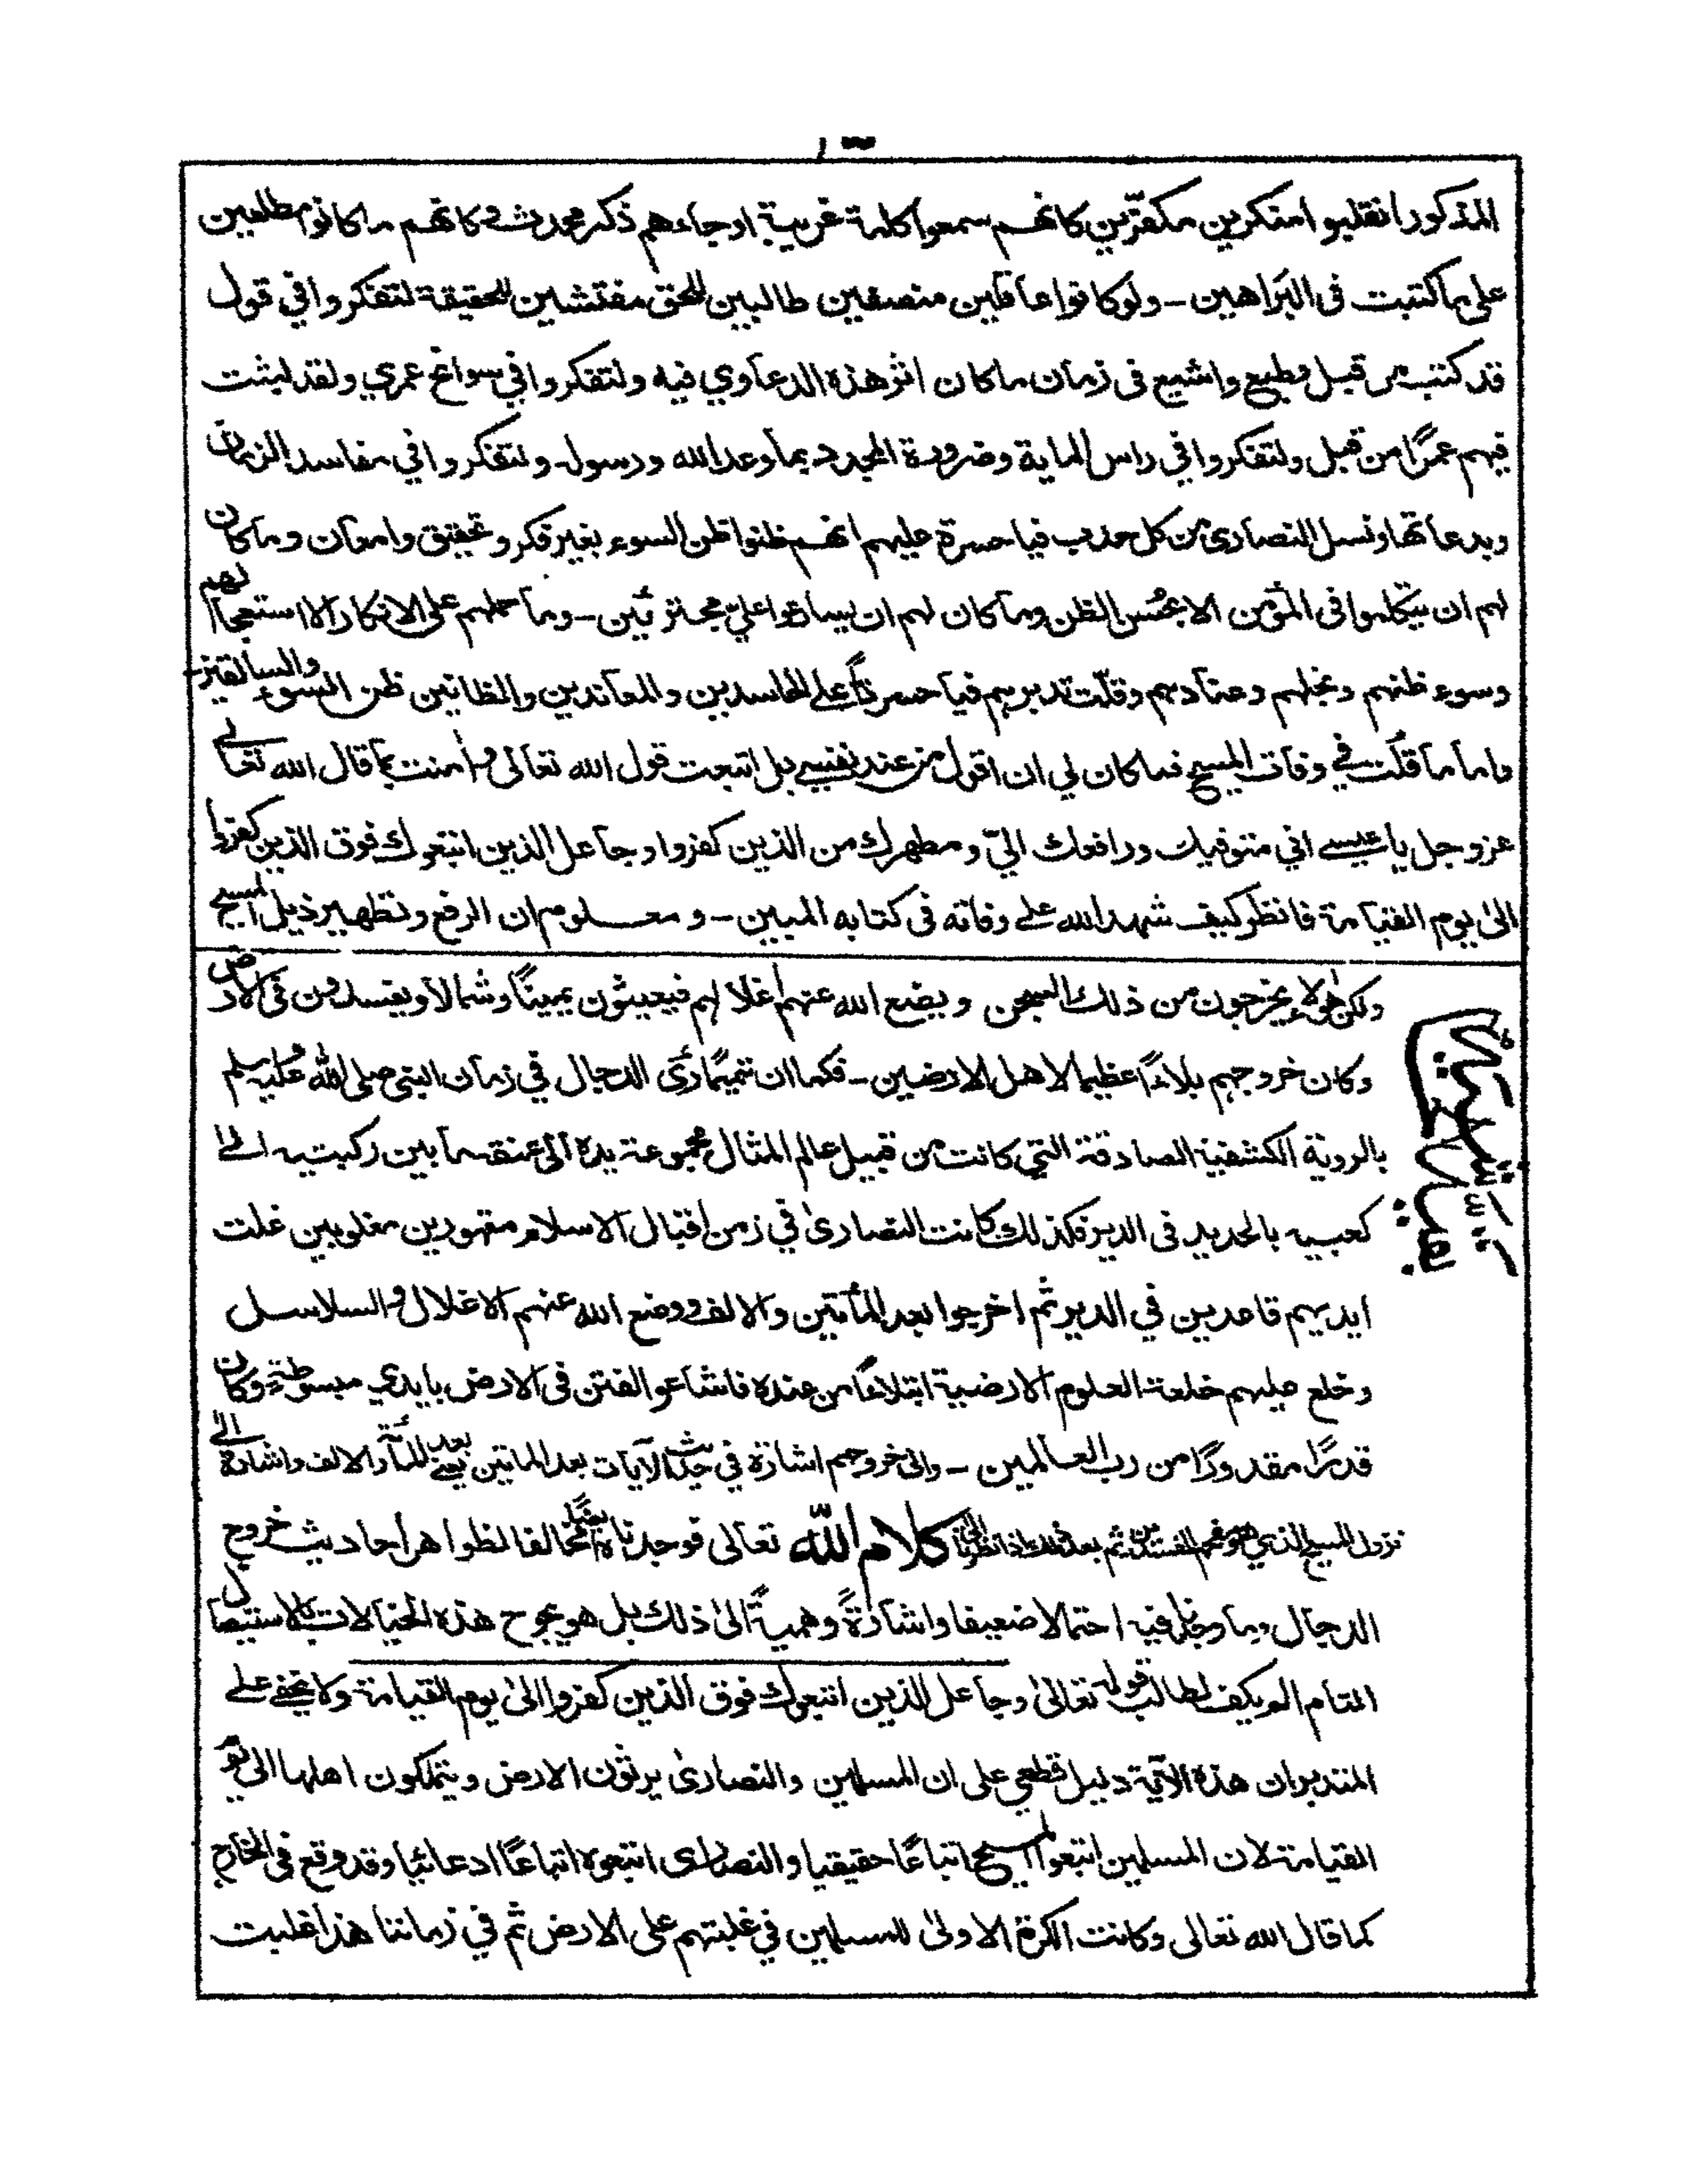 المذكور انقلبوا منكرين مكفّرين كانهم سمعوا كلمة غريبة او جاءهم ذكر محدث كانهم ما كانوا مطلعين
على ما كتبت فى البراهين ـ ولو كانوا عاقلين منصفين طالبين للحق مفتشين للحقيقة لتفكروا في قول
قد كتب من قبل وطبع واشيع فى زمان ما كان اثر هذه الدعاوي فيه ولتفكروا في سوانح عمري ولقد لبثت
فيهم عمرًا من قبل ولتفكروا في راس الماية وضرورة المجدد بما وعد الله ورسوله ولتفكروا في مفاسد الزمان
وبدعاتها ونسل النصارى من كل حدب فيا حسرة عليهم انهم ظنوا ظن السوء بغير فكر وتحقيق وامعان وما كان
لهم ان يتكلموا فى المؤمن الا بحُسن الظن وما كان لهم ان يسارعوا علىّ مجترئين ـ وما حملهم على الانكار الا استعجالهم
وسوء ظنهم وبخلهم وعنادهم وقلّت تدبرهم فيا حسرةً على الحاسدين والمعاندين والظانين ظن السوء والسابقين ـ
واما ما قلت في وفات المسيح فما كان لي ان اقول من عند نفسي بل اتبعت قول الله تعالى وآمنت بما قال الله تعالى
عز وجل يا عيسى اني متوفيك ورافعك اليّ ومطهرك من الذين كفروا وجاعل الذين اتبعوك فوق الذين كفروا
الى يوم القيامة فانظر كيف شهد الله على وفاته فى كتابه المبين ـ ومعلوم ان الرفع وتطهير ذيل المسيح
ولكن هؤلاء يخرجون من ذلك السجن ويضع الله عنهم اغلالهم فيعيثون يمينًا وشمالا ويفسدون فى الارض
وكان خروجهم بلاءً عظيما لاهل الارضين ـ فكما ان تميمًا رأى الدجال في زمان النبى صلى الله عليه وسلم
بالروية الكشفية الصادقة التي كانت من قبيل عالم المثال مجموعة يده الى عنقه ما بين ركبتيه الى
كعبيه بالحديد فى الدير فكذلك كانت النصارى في زمن اقبال الاسلام مقهورين مغلوبين غلت
ايديهم قاعدين في الدير ثم اخرجوا بعد المأتين والالف ووضع الله عنهم الاغلال والسلاسل
وخلع عليهم خلعة العلوم الارضية ابتلاءً من عنده فاشاعوا الفتن فى الارض بايدي مبسوطة وكان
قدرًا مقدورًا من رب العالمين ـ والى خروجهم اشارة في حديث الآيات بعد الماتين يعني بعد المأتين والالف واشارة الى
نزول المسيح الذي هو ثم بعد ذلك اذا نظرنا الى كلام الله تعالى فوجدناه مخالفا لظواهر احاديث خروج
الدجال وما وجدنا فيه احتمالا ضعيفا واشارةً وهميةً الى ذلك بل هو يجوح هذه الخيالات بالاستيصال
التام الم يكف لطالب قوله تعالى وجاعل الذين اتبعوك فوق الذين كفروا الى يوم القيامة ولا يخفى على
المتدبر ان هذه الآية دليل قطعي على ان المسلمين والنصارى يرثون الارض ويتملكون اهلها الى يوم
القيامة لان المسلمين اتبعوا المسيح اتباعًا حقيقيا والنصارى اتبعوه اتباعًا ادعائيا وقد وقع فى الخارج
كما قال الله تعالى وكانت الكرة الاولى للمسلمين في غلبتهم على الارض ثم في زماننا هذا غلبت